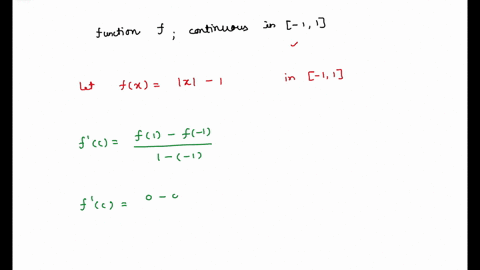 function f ; continuous in [-1, 1]
✓
Let f(x) = |x| - 1 in [-1, 1]
f'(c) = f(1) - f(-1) / 1 - (-1)
f'(c) = 0 - 0